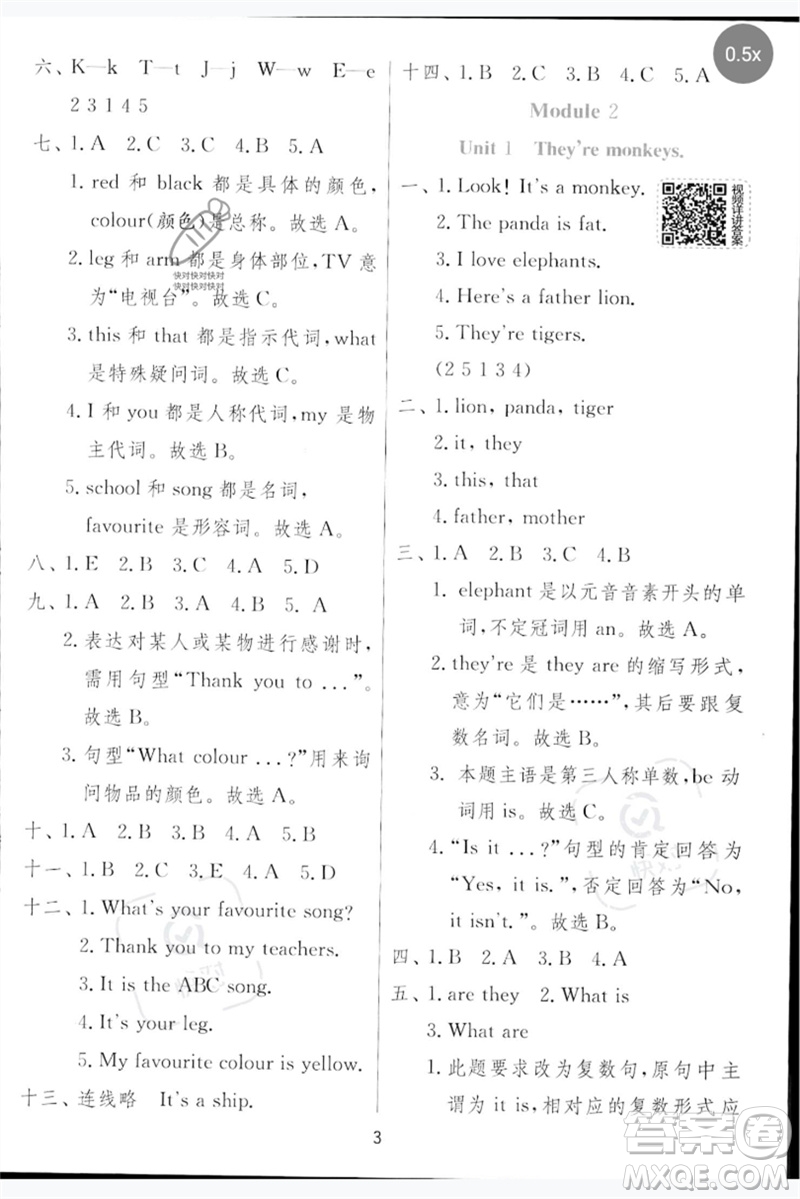 0.5x
六、K—k T—t J—j W—w E—e
2 3 1 4 5
七、1. A 2. C 3. C 4. B 5. A
1. red 和 black 都是具体的颜色，
colour(颜色)是总称。故选 A。
2. leg 和 arm 都是身体部位，TV 意
为“电视台”。故选 C。
3. this 和 that 都是指示代词，what
是特殊疑问词。故选 C。
4. I 和 you 都是人称代词，my 是物
主代词。故选 B。
5. school 和 song 都是名词，
favourite 是形容词。故选 A。
八、1. E 2. B 3. C 4. A 5. D
九、1. A 2. B 3. A 4. B 5. A
2. 表达对某人或某物进行感谢时，
需用句型“Thank you to ...”。
故选 B。
3. 句型“What colour ...?”用来询
问物品的颜色。故选 A。
十、1. A 2. B 3. B 4. A 5. B
十一、1. B 2. C 3. E 4. A 5. D
十二、1. What's your favourite song?
2. Thank you to my teachers.
3. It is the ABC song.
4. It's your leg.
5. My favourite colour is yellow.
十三、连线略 It's a ship.
快对快对快对
快对快对快对
十四、1. B 2. B 3. B 4. C 5. A
Module 2
Unit 1 They're monkeys.
一、1. Look! It's a monkey.
2. The panda is fat.
3. I love elephants.
4. Here's a father lion.
5. They're tigers.
(2 5 1 3 4)
视频详讲答案
二、1. lion, panda, tiger
2. it, they
3. this, that
4. father, mother
三、1. A 2. B 3. C 4. B
1. elephant 是以元音音素开头的单
词，不定冠词用 an。故选 A。
2. they're 是 they are 的缩写形式，
意为“它们是……”，其后要跟复
数名词。故选 B。
3. 本题主语是第三人称单数，be 动
词用 is。故选 C。
4. “Is it ...?”句型的肯定回答为
“Yes, it is.”，否定回答为“No,
it isn't.”。故选 B。
四、1. B 2. B 3. A 4. A 5. A
五、1. are they 2. What is
3. What are
1. 此题要求改为复数句，原句中主
谓为 it is，相对应的复数形式应
3
答案圈
MXQE.COM